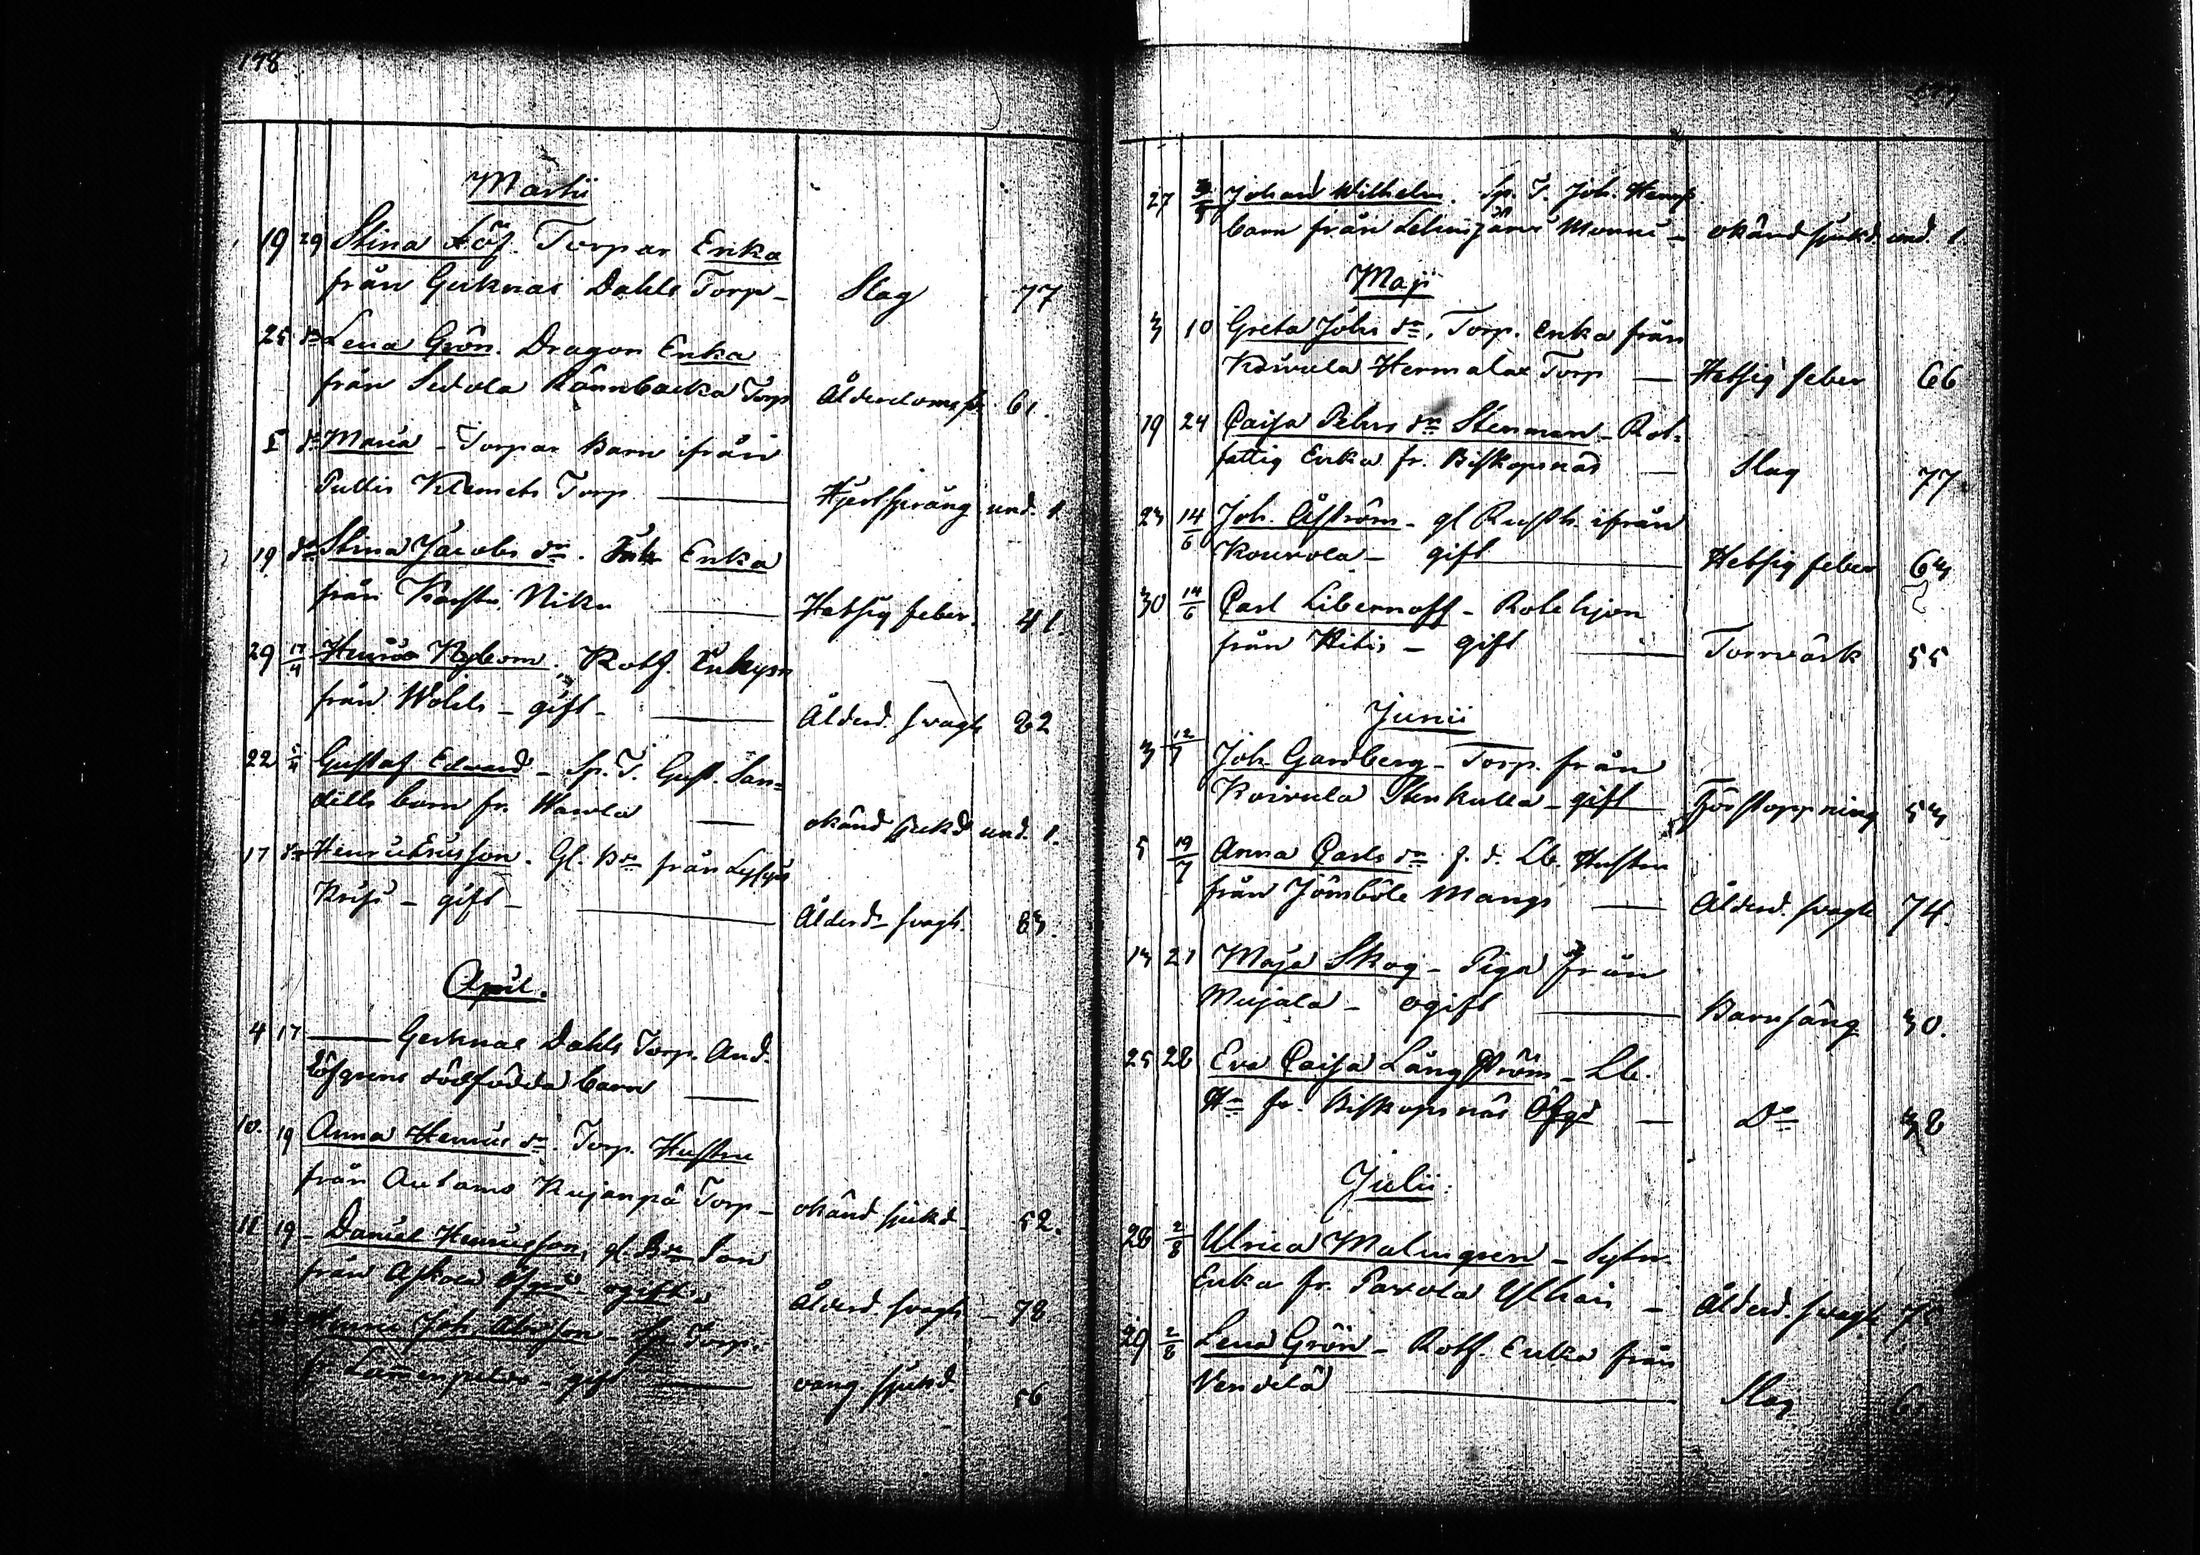 198
Martii
19 29 Stina Löf. Torpar Enka
från Gerknäs Dahls Torp – Slag 77
25 do Lena Grön. Dragon Enka
från Sedola Rönnbacka Torp Ålderdoms 61.
5 do Maria – Torpar Barn ifrån
Pullis Klemets Torp Hjertsprång und. 1
19 do Stina Jacobs dr. Enka
från Niku Hetsig feber. 41.
29 17/4 Nybom. Rotf. Enkym
från Wohls – gift – Ålderd. svagh 82
22 Gustaf Edvard – Sp. T. Gust. San=
dells barn fr. Havola okänd sjukd und. 1.
17 do Henric Ericsson. Gl. Bn från
gift – Ålderd svagh. 83.
April.
4 17 Gerknäs Dahls Torp. And.
Löfgrens dödfödda barn
10. 19 Anna Henrics dr. Torp. Hustru
från Kujanpä Torp – okänd sjukd – 52.
11 19 – Daniel Henricsson, gl. Bn Son
från ogift. Ålderd. svagh – 78
Henric Joh. – Sp. Torp.
fr. Lämenpelto – gift sjukd. 56
199
27 3/5 Johan Wilhelm. Sp. T. Joh.
barn från – okänd sjukd. und. 1
Maji
3 10 Greta Johs dr, Torp. Enka från
Koivula Hermala Torp Hetsig feber 66
19 24 Caisa Pehrs dr Stenman – Rot=
fattig Enka fr. Biskopsnäs Slag 77.
23 14/6 Joh. Åström – gl Rusth. ifrån
Kourola – gift Hetsig feber 63
30 14/6 Carl Libernoff – Rotehjon
från Hitis – gift Torrvärk 55
Junii
3 12/7 Joh. Gardberg – Torp. från
Koivula Stenkulla – gift Förstoppning 53
5 19/7 Anna Carls dr f. d. Lb. Hustru
från Jönsböle Mangs Ålderd. svagh 74.
13 21 Maja Skog – Piga från
Mujala – ogift Barnsäng 30.
25 28 Eva Caisa Långström – Lb.
Hu fr. Biskopsnäs Öfgd – Do 38
Julii.
28 2/8 Ulrica Malmgren – Sytn.
Enka fr. Pavola Ylhäis – Ålderd. svagh
29 2/8 Lena Grön – Rotf. Enka från
Vendelä Slag.